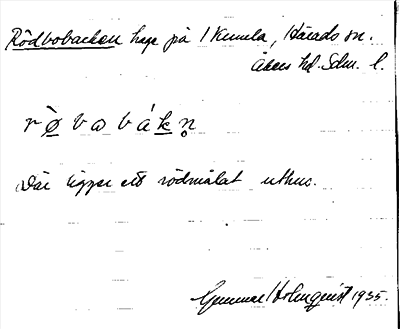 Rödbobacken hage på 1 Kumla, Härads sn.
Åkers hd. Sdm. l.
rø̀bobákn̥
Där ligger ett rödmålat uthus.
Gunnar Holmquist 1935.